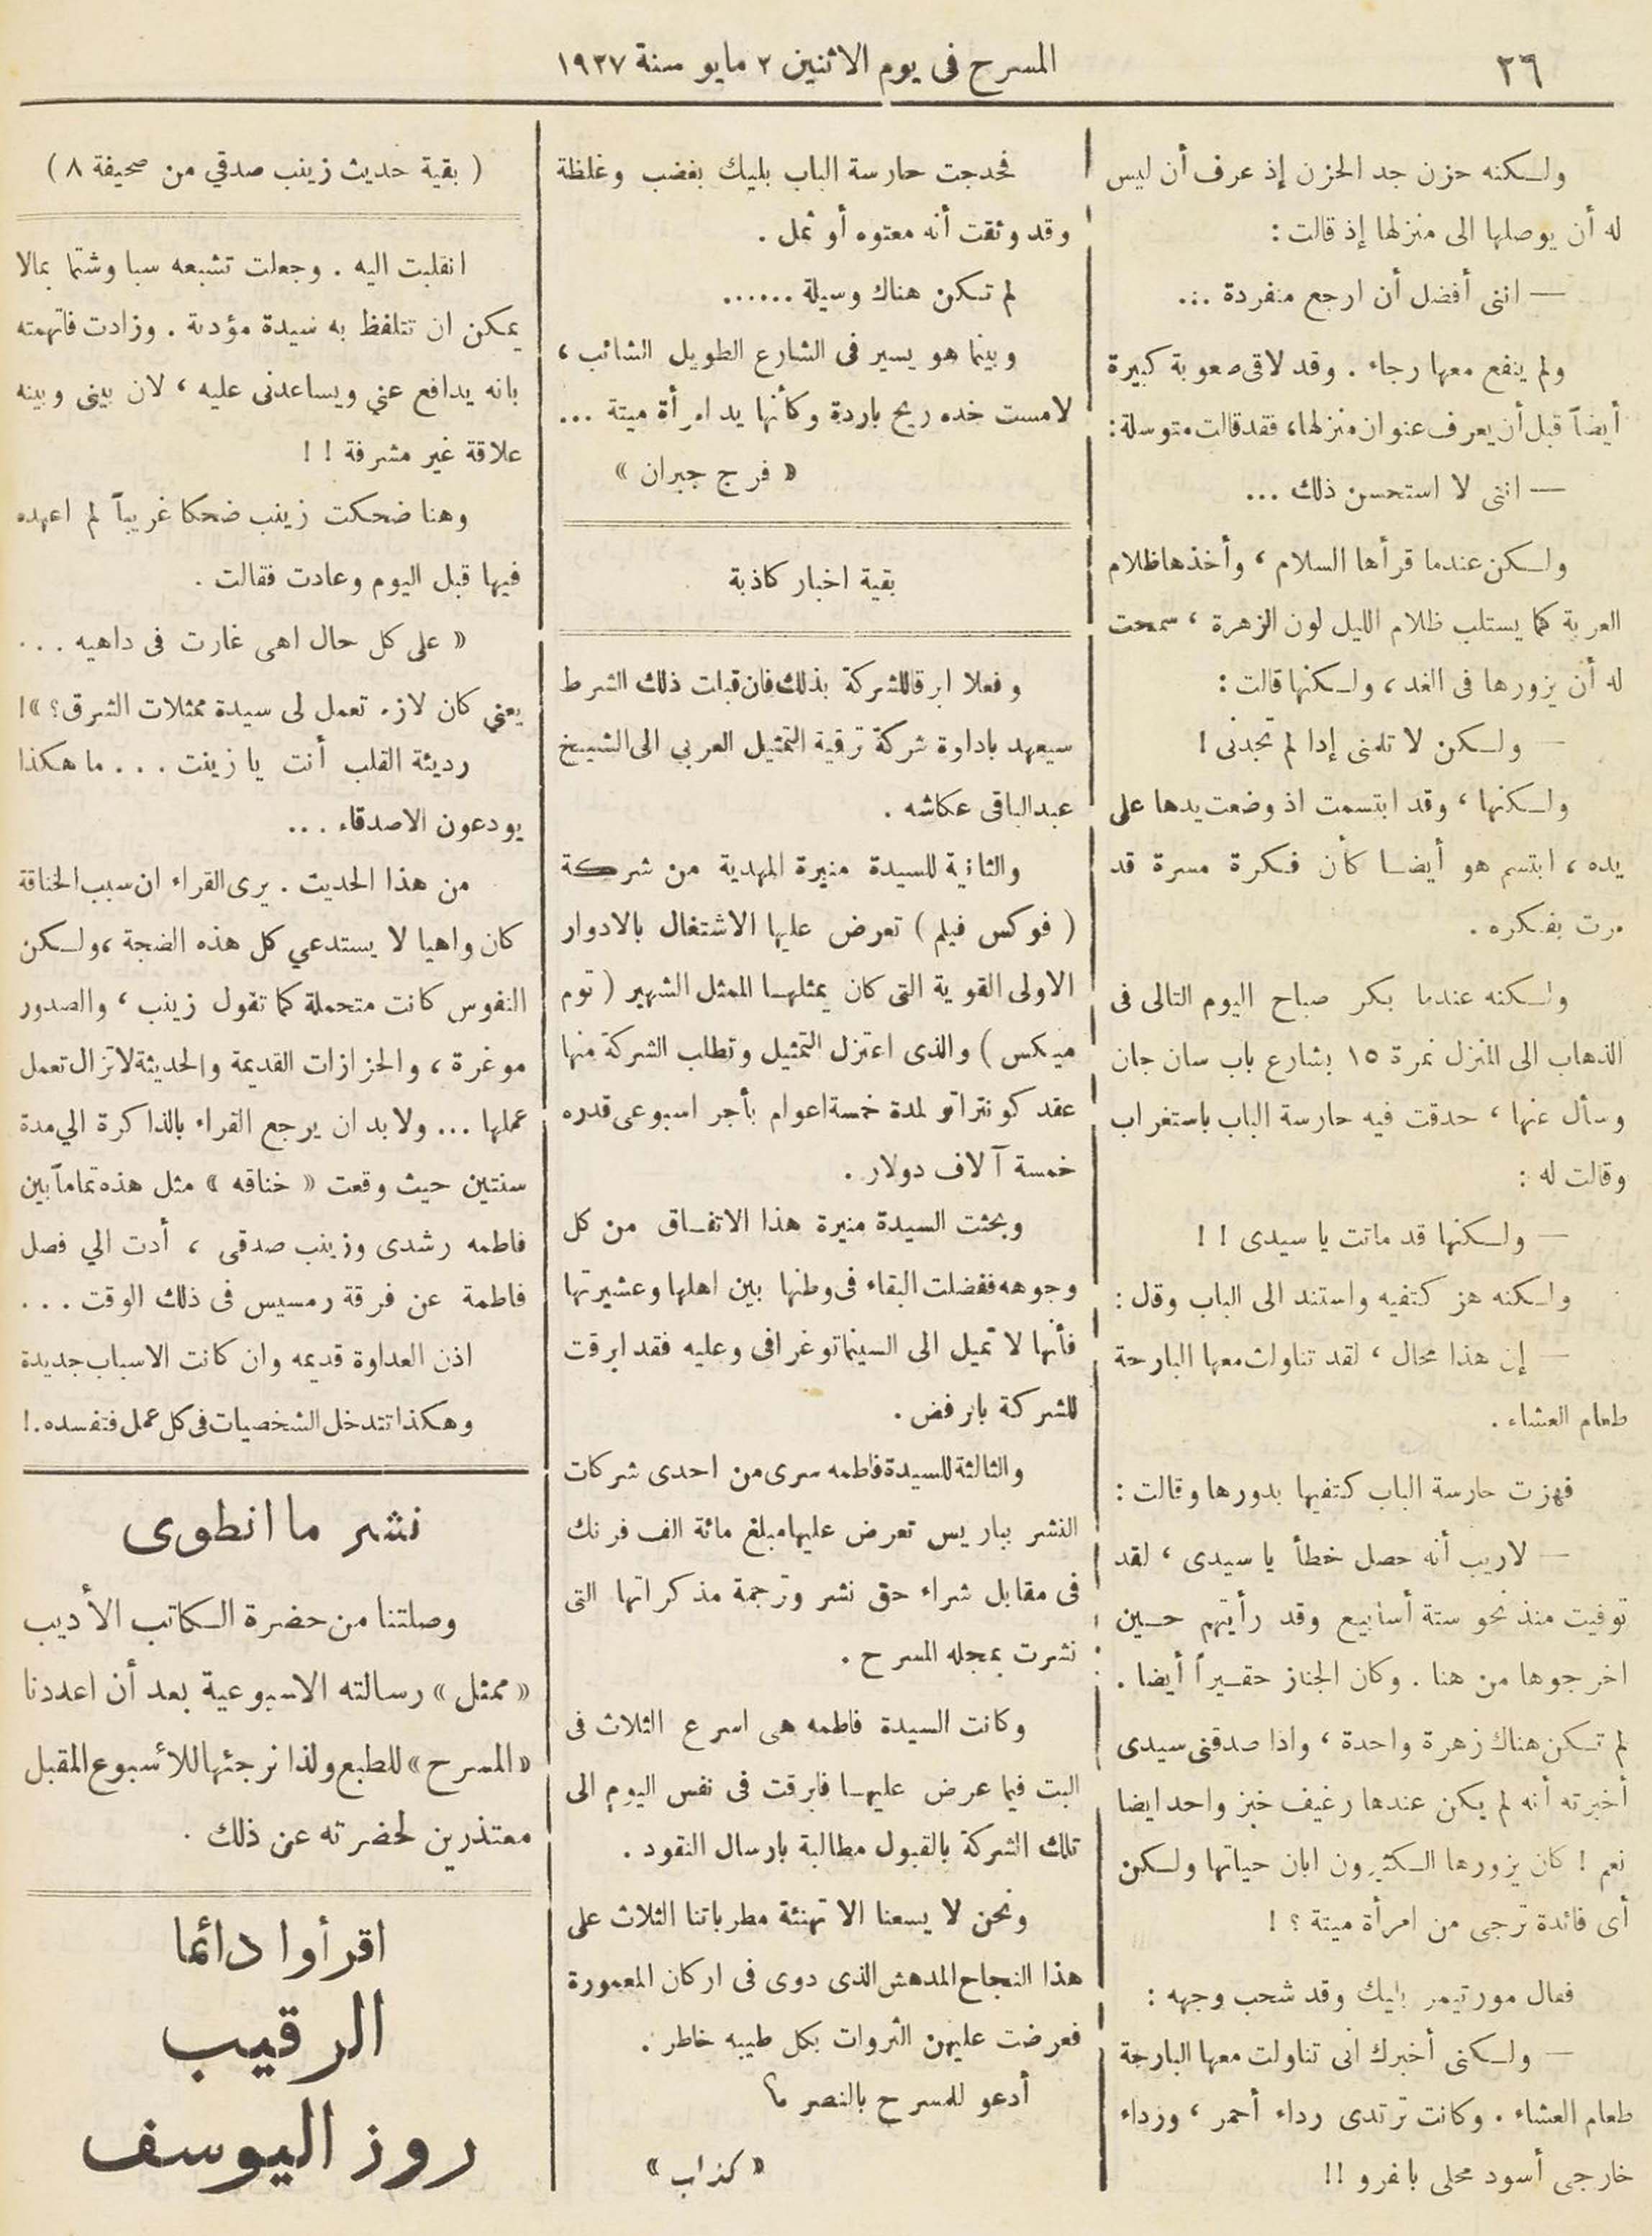 ٢٦
المسرح فى يوم الاثنين ٢ مايو سنة ١٩٢٧
ولكنه حزن جد الحزن إذ عرف أن ليس
له أن يوصلها الى منزلها إذ قالت :
— اننى أفضل أن ارجع منفردة ...
ولم ينفع معها رجاء . وقد لاقى صعوبة كبيرة
أيضاً قبل أن يعرف عنوان منزلها، فقد قالت متوسلة :
— اننى لا استحسن ذلك ...
ولكن عندما قرأها السلام ، وأخذها ظلام
العربة كما يستلب ظلام الليل لون الزهرة ، سمحت
له أن يزورها فى الغد ، ولكنها قالت :
— ولكن لا تلمنى إدا لم تجدنى !
ولكنها ، وقد ابتسمت اذ وضعت يدها على
يده ، ابتسم هو أيضا كأن فكرة مسرة قد
مرت بفكره .
ولكنه عندما بكر صباح اليوم التالى فى
الذهاب الى المنزل نمرة ١٥ بشارع باب سان جان
وسأل عنها ، حدقت فيه حارسة الباب باستغراب
وقالت له :
— ولكنها قد ماتت يا سيدى ! !
ولكنه هز كتفيه واستند الى الباب وقل :
— إن هذا محال ، لقد تناولت معها البارحة
طعام العشاء .
فهزت حارسة الباب كتفيها بدورها وقالت :
— لاريب أنه حصل خطأ يا سيدى ، لقد
توفيت منذ نحو ستة أسابيع وقد رأيتهم حين
اخرجوها من هنا . وكان الجناز حقيراً أيضا .
لم تكن هناك زهرة واحدة ، واذا صدقنى سيدى
أخبرته أنه لم يكن عندها رغيف خبز واحد ايضا
نعم ! كان يزورها الكثيرون ابان حياتها ولكن
أى فائدة ترجى من امرأة ميتة ؟ !
فقال مورتيمر بليك وقد شحب وجهه :
— ولكنى أخبرك انى تناولت معها البارحة
طعام العشاء . وكانت ترتدى رداء أحمر ، ورداء
خارجى أسود محلى بالفرو !!
فحدجت حارسة الباب بليك بغضب وغلظة
وقد وثقت أنه معتوه أو ثمل .
لم تكن هناك وسيلة ......
وبينما هو يسير فى الشارع الطويل الشائب ،
لامست خده ريح باردة وكأنها يد امرأة ميتة ...
« فرج جبران »
بقية اخبار كاذبة
وفعلا ابرقا للشركة بذلك فان قبلت ذلك الشرط
سيعهد باداوة شركة ترقية التمثيل العربي الى الشيخ
عبد الباقى عكاشه .
والثانية للسيدة منيرة المهدية من شركة
( فوكس فيلم ) تعرض عليها الاشتغال بالادوار
الاولى القوية التى كان يمثلها الممثل الشهير ( توم
ميكس ) والذى اعتزل التمثيل وتطلب الشركة منها
عقد كونتراتو لمدة خمسة اعوام بأجر اسبوعى قدره
خمسة آلاف دولار .
وبحثت السيدة منيرة هذا الاتفاق من كل
وجوهه ففضلت البقاء فى وطنها بين اهلها وعشيرتها
فأنها لا تميل الى السينماتوغرافى وعليه فقد ابرقت
للشركة بالرفض .
والثالثة للسيدة فاطمه سرى من احدى شركات
النشر بباريس تعرض عليها مبلغ مائة الف فرنك
فى مقابل شراء حق نشر وترجمة مذكراتها التى
نشرت بمجله المسرح .
وكانت السيدة فاطمه هى اسرع الثلاث فى
البت فيما عرض عليها فابرقت فى نفس اليوم الى
تلك الشركة بالقبول مطالبة بارسال النقود .
ونحن لا يسعنا الا تهنئة مطرباتنا الثلاث على
هذا النجاح المدهش الذى دوى فى اركان المعمورة
فعرضت عليهن الثروات بكل طيبه خاطر .
أدعو للمسرح بالنصر م؟
« كذاب »
( بقية حديث زينب صدقي من صحيفة ٨ )
انقلبت اليه . وجعلت تشبعه سبا وشتما بمالا
يمكن ان تتلفظ به سيدة مؤدبة . وزادت فاتهمته
بانه يدافع عني ويساعدنى عليه ، لان بينى وبينه
علاقة غير مشرفة ! !
وهنا ضحكت زينب ضحكا غريباً لم اعهده
فيها قبل اليوم وعادت فقالت .
« على كل حال اهى غارت فى داهيه ...
يعني كان لازم تعمل لى سيدة ممثلات الشرق؟ »!
رديئة القلب أنت يا زينت ... ما هكذا
يودعون الاصدقاء ...
من هذا الحديث . يرى القراء ان سبب الخناقة
كان واهيا لا يستدعي كل هذه الضجة ، ولكن
النفوس كانت متحملة كما تقول زينب ، والصدور
موغرة ، والحزازات القديمة والحديثة لاتزال تعمل
عملها ... ولا بد ان يرجع القراء بالذاكرة الي مدة
سنتين حيث وقعت « خناقه » مثل هذه تماماً بين
فاطمه رشدى وزينب صدقى ، أدت الي فصل
فاطمة عن فرقة رمسيس فى ذلك الوقت ...
اذن العداوة قديمه وان كانت الاسباب جديدة
وهكذا تتدخل الشخصيات فى كل عمل فتفسده .!
نشر ما انطوى
وصلتنا من حضرة الكاتب الأديب
« ممثل » رسالته الاسبوعية بعد أن اعددنا
« المسرح » للطبع ولذا نرجئها للأسبوع المقبل
معتذرين لحضرته عن ذلك .
اقرأوا دائما
الرقيب
روز اليوسف